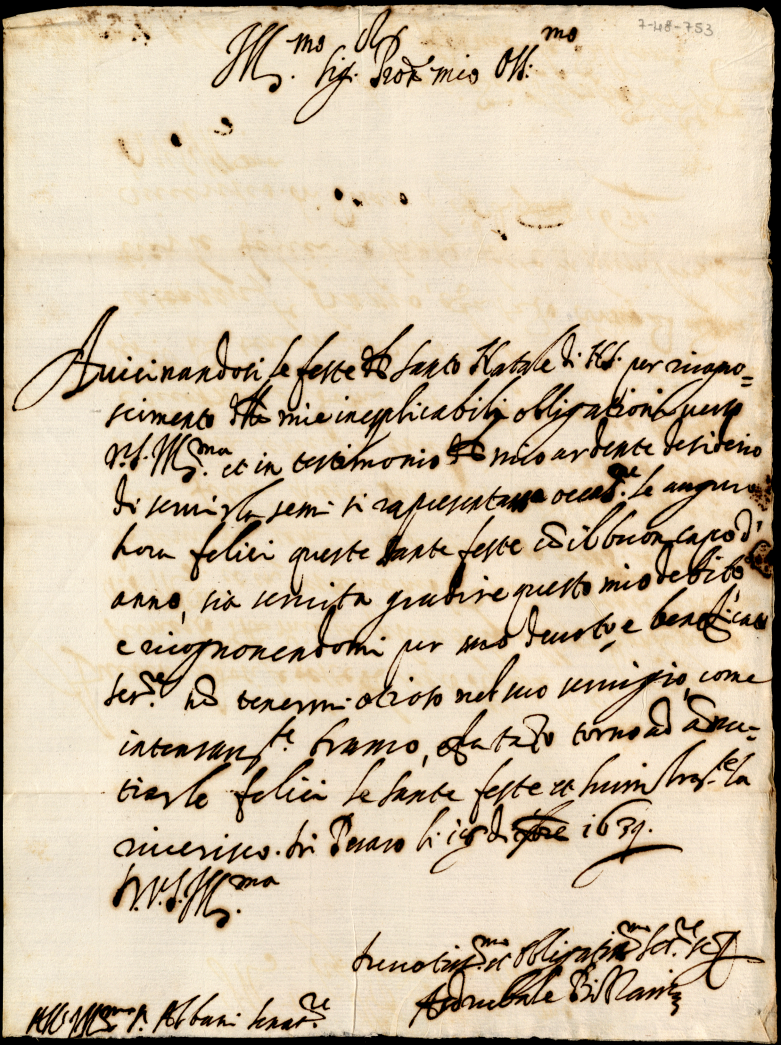 7-48-753
Ill.mo Sig.r Pron mio Oss.mo
Auicinandosi le feste del Santo Natale di per ricogno=
scimento delle mie inesplicabili obligationi uerso
V.S. Ill.ma et in testimonio del mio ardente desiderio
di seruirla semi si rapresentasse occas.ne le auguro
hora felici queste sante feste co il buon capo d'
anno, sia seruita gradire questo mio debito
e ricognoscendomi per suo deuoto, e beneficato
ser.re no tenermi otioso nel suo seruigio, come
intensam.te bramo, et fra tato torno ad anu=
tiarle felici le sante feste et la
riuerisco. Di Pesaro li di Xbre 1639.
D.V.S. Ill.ma
Deuotiss.mo et obligatiss.mo Ser.re
Asdrubale
All'Ill.mo S. Albani Senat.re